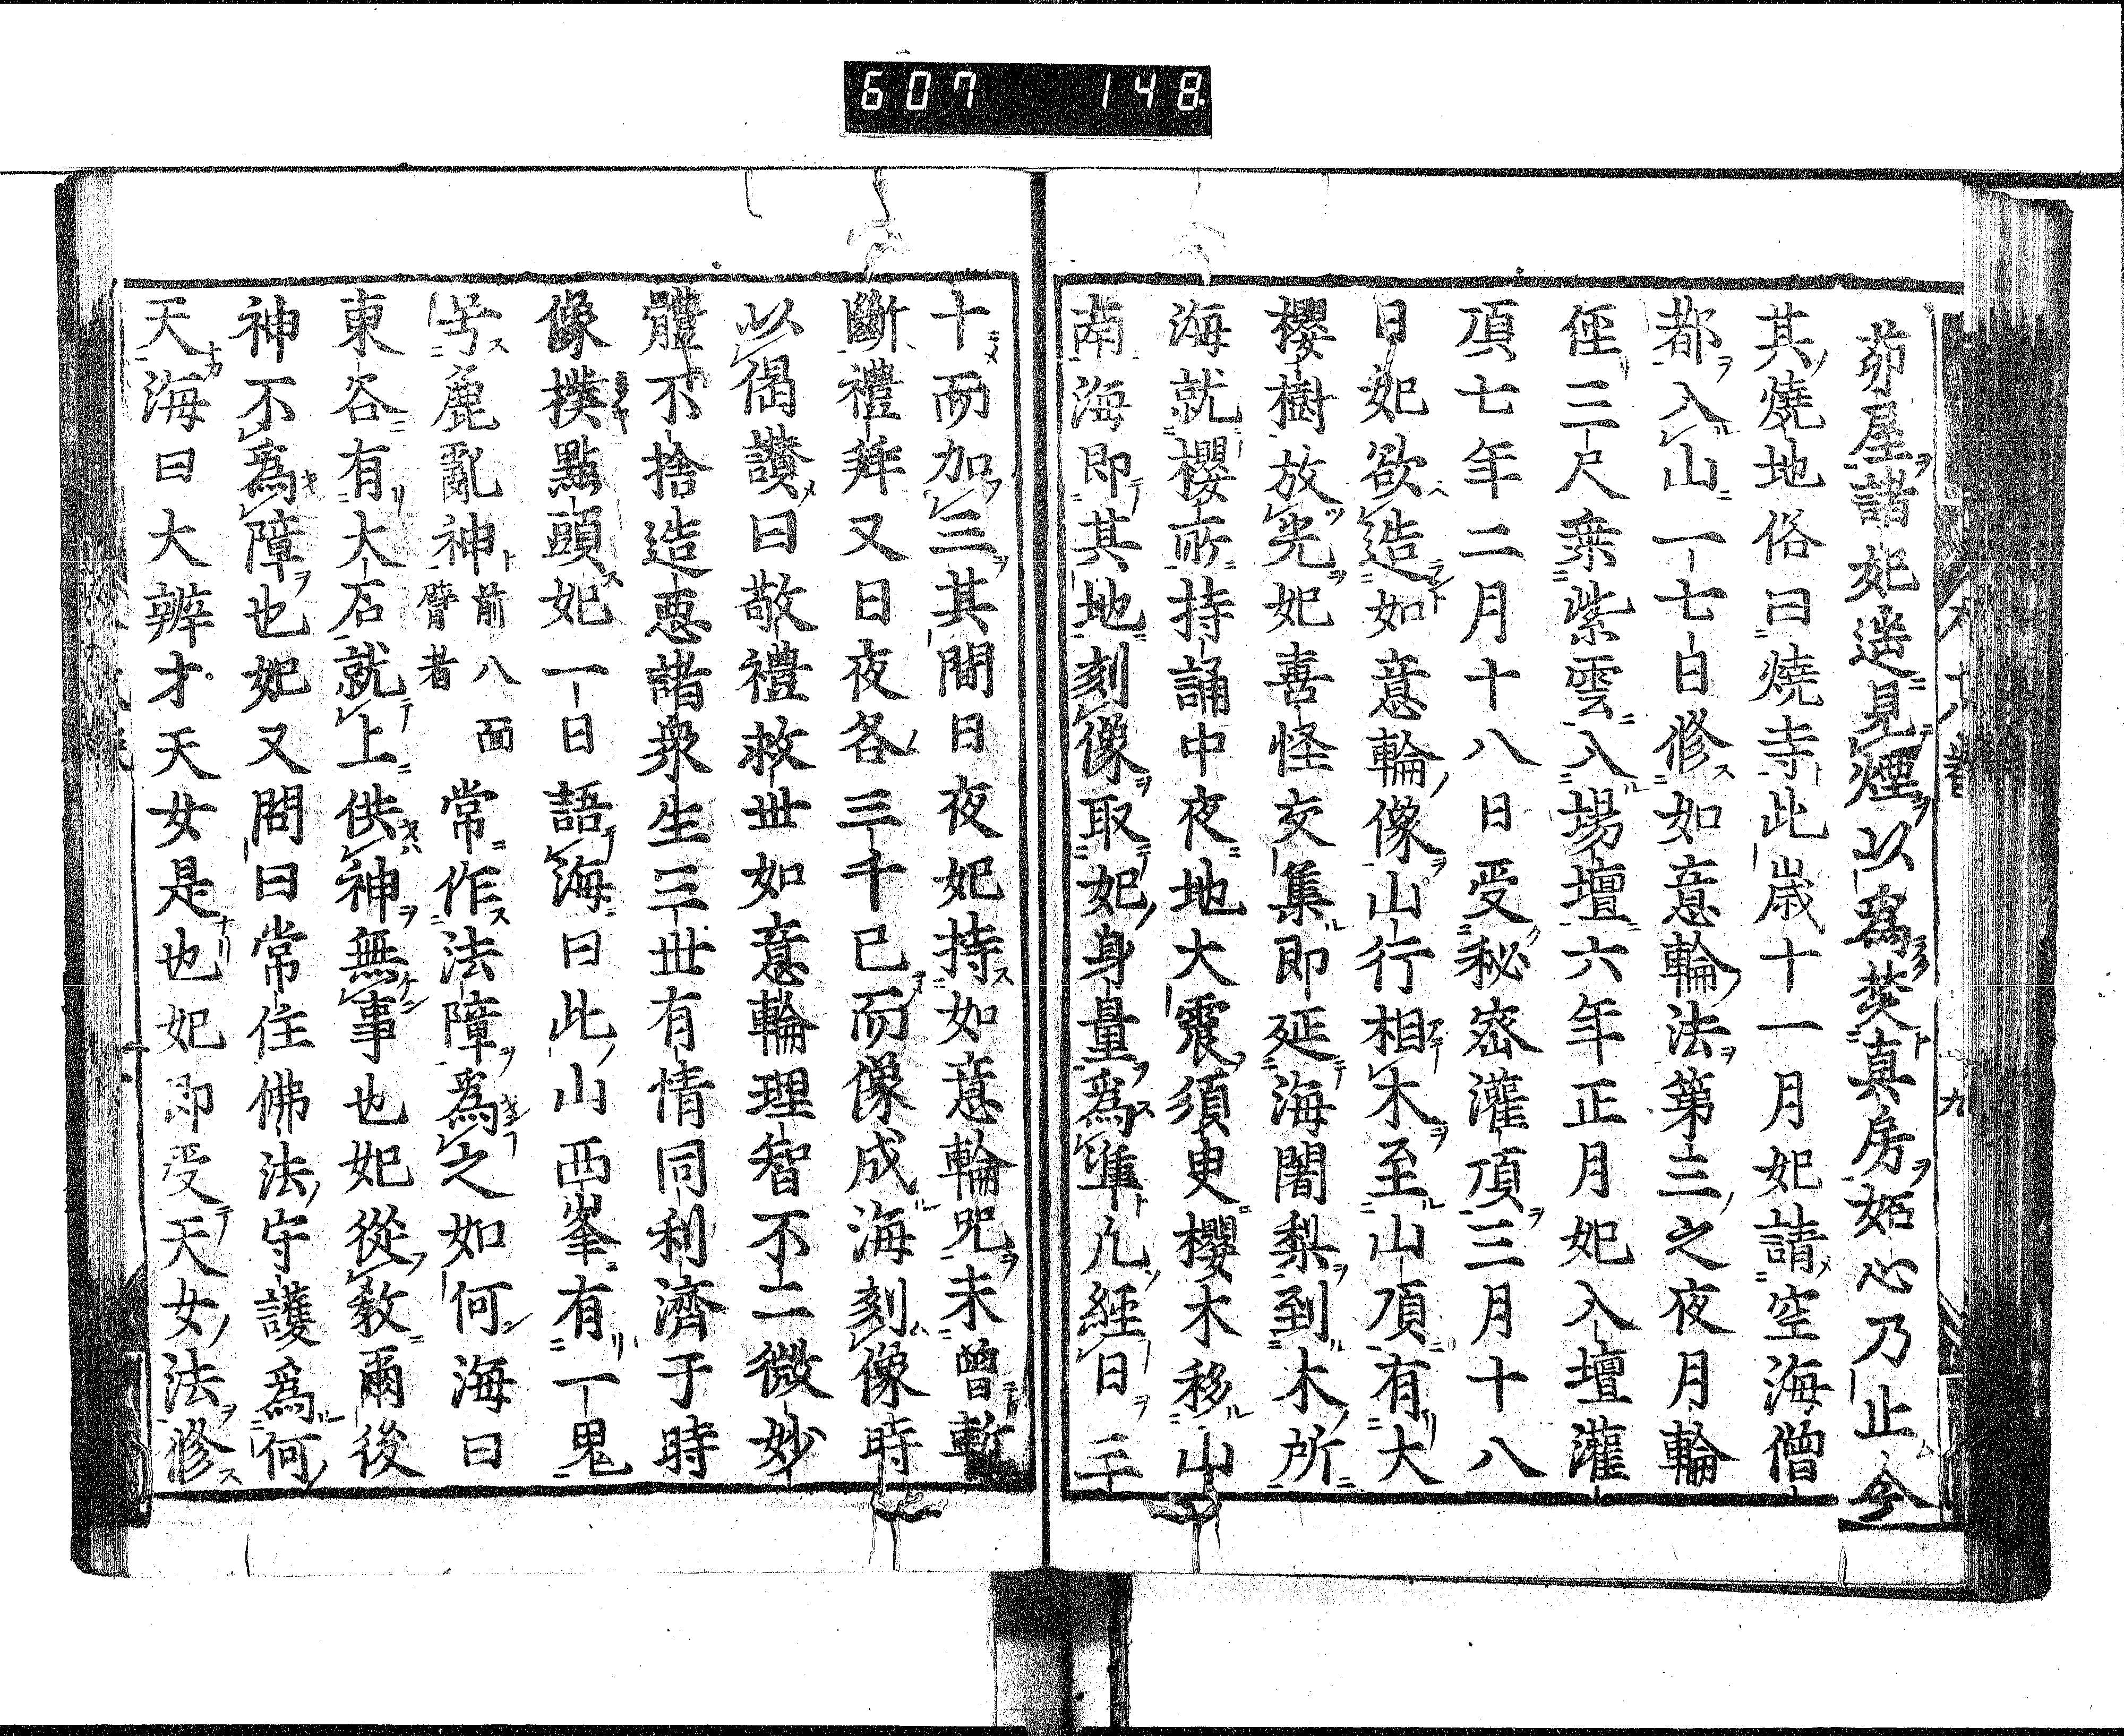 607 148.
茆屋諸妃遥見煙以為焚真房妬心乃止今
其燒地俗曰燒寺此歲十一月妃請空海僧
都入山一七日修如意輪法第三之夜月輪
俓三尺乗紫雲入場壇六年正月妃入壇灌
頂七年二月十八日受秘密灌頂三月十八
日妃欲造如意輪像山行相木至山頂有大
櫻樹放光妃喜怪交集即延海闍梨到木所
海就櫻所持誦中夜地大震須臾櫻木移山
南海即其地刻像取妃身量為準凡經日三
十而加三其間日夜妃持如意輪咒未曾暫
斷禮拜又日夜各三千已而像成海刻像時
以偈讃曰敬禮救世如意輪理智不二微妙
體不捨造惡諸衆生三世有情同利濟于時
像揆點頭妃一日語海曰此山西峯有一鬼
号麁亂神前八面臂者常作法障為之如何海曰
東谷有大石就上供神無事也妃從教爾後
神不為障也妃又問曰常住佛法守護為何
天海曰大辨才天女是也妃即受天女法修